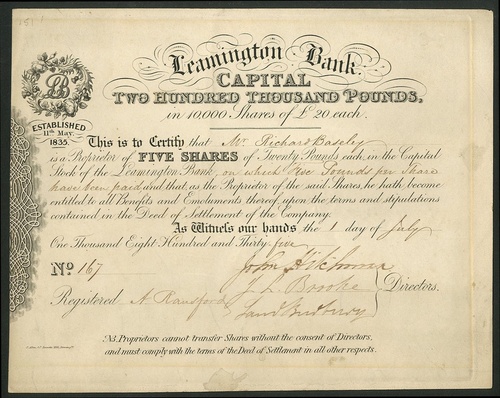 151
Leamington Bank.
CAPITAL
TWO HUNDRED THOUSAND POUNDS,
in 10,000 Shares of £20 each.
LB
ESTABLISHED
11th May.
1835.
This is to Certify that Mr. Richard Baseley
is a Proprietor of FIVE SHARES of Twenty Pounds each, in the Capital
Stock of the Leamington Bank, on which Five Pounds per Share
have been paid and that, as the Proprietor of the said Shares, he hath become
entitled to all Benefits and Emoluments thereof, upon the terms and stipulations
contained in the Deed of Settlement of the Company.
As Witness our hands the 1 day of July
One Thousand Eight Hundred and Thirty five
No 167
John
J. L. Brooke
Directors.
Registered A Ransford
NB. Proprietors cannot transfer Shares without the consent of Directors,
and must comply with the terms of the Deed of Settlement in all other respects.